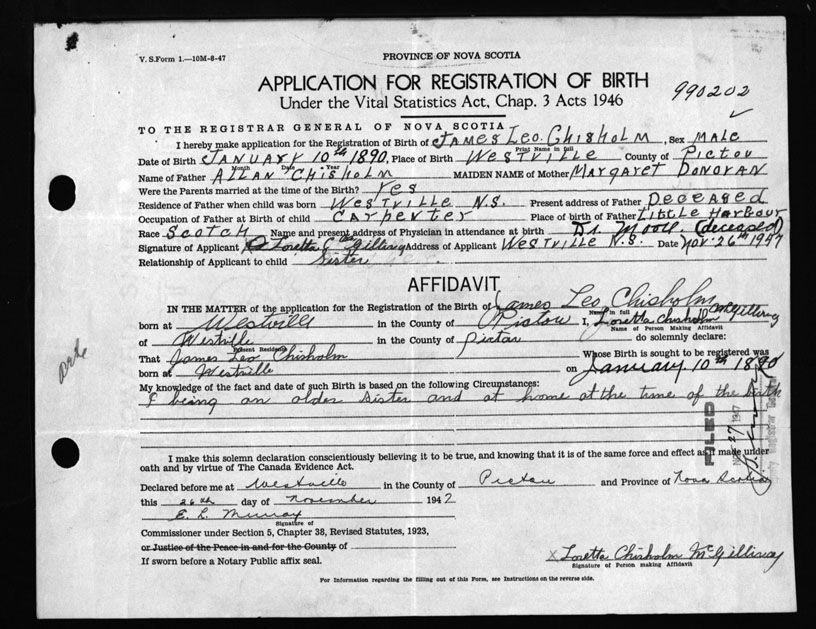 V. S. Form 1.—10M-8-47
PROVINCE OF NOVA SCOTIA
APPLICATION FOR REGISTRATION OF BIRTH
Under the Vital Statistics Act, Chap. 3 Acts 1946
990202
TO THE REGISTRAR GENERAL OF NOVA SCOTIA
I hereby make application for the Registration of Birth of JAMES LEO CHISHOLM, Sex MALE
Print Name in full
Date of Birth JANUARY 10th 1890, Place of Birth WESTVILLE County of PICTOU
Month Year
Name of Father ALLAN CHISHOLM MAIDEN NAME of Mother MARGARET DONOVAN
Were the Parents married at the time of the Birth? Yes
Residence of Father when child was born WESTVILLE N.S. Present address of Father DECEASED
Occupation of Father at Birth of child CARPENTER Place of birth of Father LITTLE HARBOUR
Race SCOTCH Name and present address of Physician in attendance at birth Dr. Moore (deceased)
Signature of Applicant Loretta C Gillivray Address of Applicant WESTVILLE N.S. Date Nov. 26th 1947
Relationship of Applicant to child Sister
AFFIDAVIT
IN THE MATTER of the application for the Registration of the Birth of James Leo Chisholm
Name in full
born at Westville in the County of Pictou I, Loretta Chisholm McGillivray
Name of Person Making Affidavit
of Westville in the County of Pictou do solemnly declare:
Present Residence
That James Leo Chisholm Whose Birth is sought to be registered was
born at Westville on January 10th 1890
My knowledge of the fact and date of such Birth is based on the following Circumstances:
I being an older Sister and at home at the time of the birth
FILED
NOV 27 1947
I make this solemn declaration conscientiously believing it to be true, and knowing that it is of the same force and effect as if made under
oath and by virtue of The Canada Evidence Act.
Declared before me at Westville in the County of Pictou and Province of Nova Scotia
this 26th day of November 1947
E. L. Murray
Signature of
Commissioner under Section 5, Chapter 38, Revised Statutes, 1923,
or Justice of the Peace in and for the County of
If sworn before a Notary Public affix seal.
X Loretta Chisholm McGillivray
Signature of Person making Affidavit
For Information regarding the filling out of this Form, see Instructions on the reverse side.